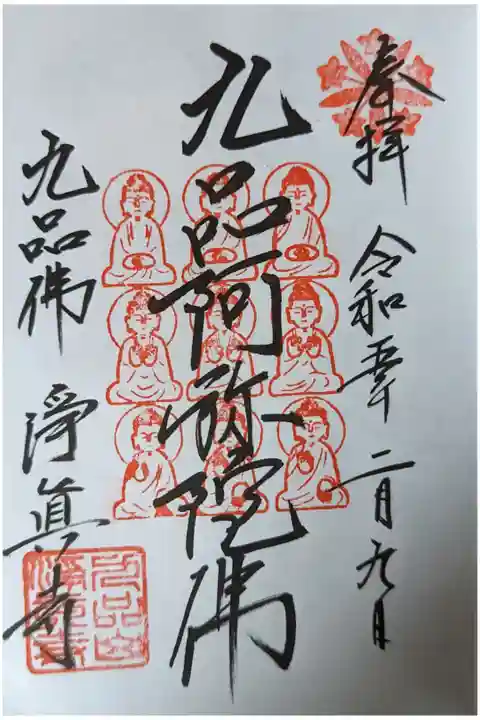 奉拝 令和五年 二月九日
九品阿弥陀佛
九品佛 淨真寺